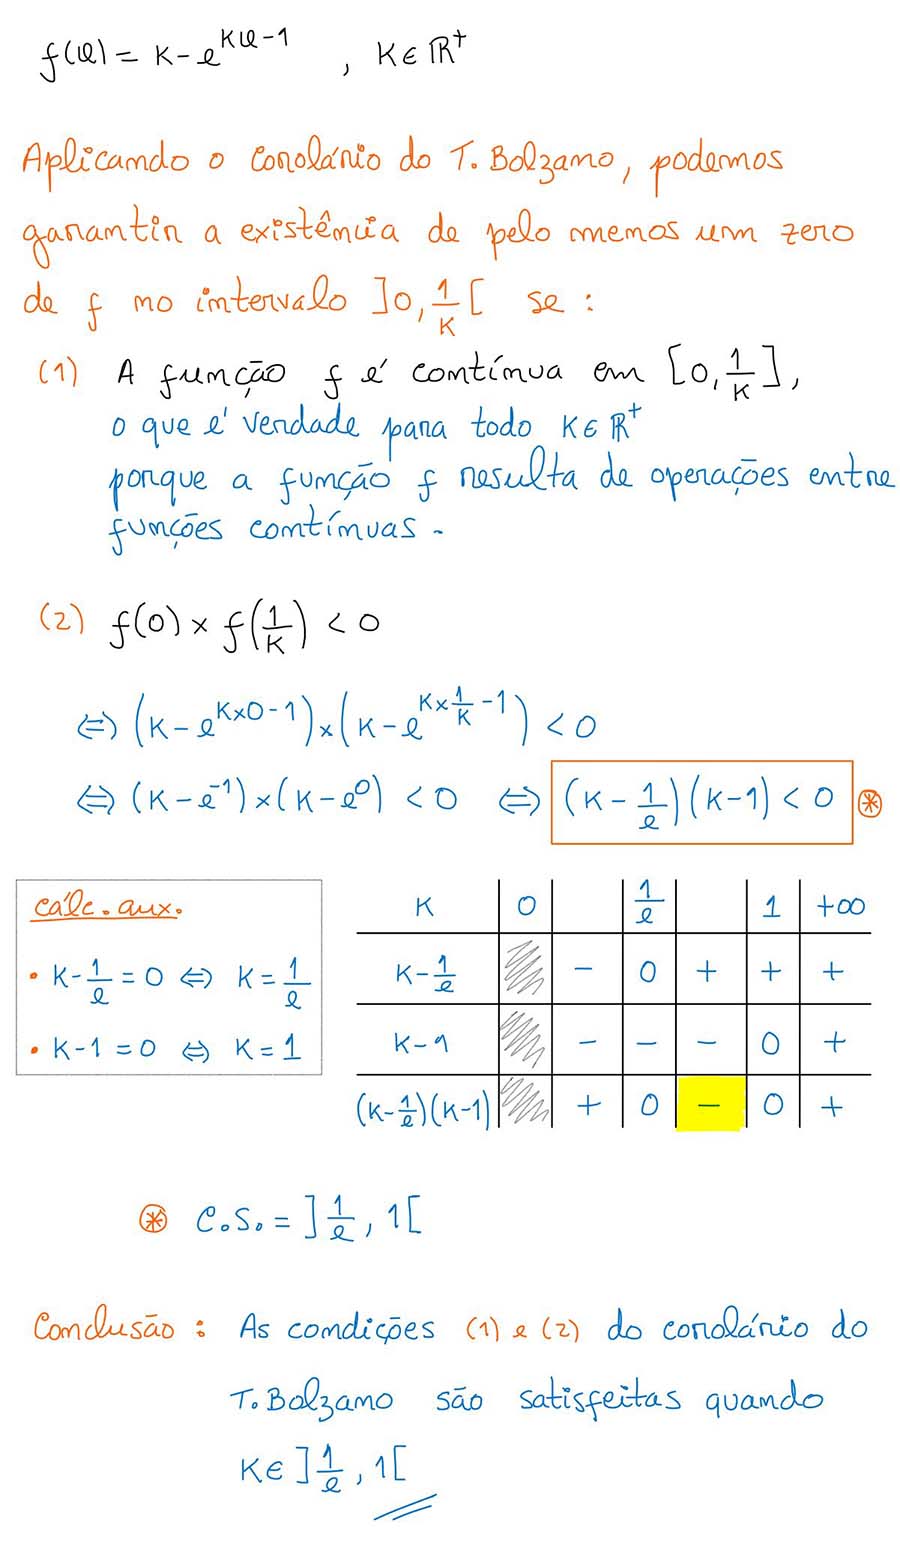 f(x) = K - e^{Kx-1} , K ∈ ℝ⁺
Aplicando o corolário do T. Bolzano, podemos
garantir a existência de pelo menos um zero
de f no intervalo ]0, 1/K[ se :
(1) A função f é contínua em [0, 1/K],
o que é verdade para todo K ∈ ℝ⁺
porque a função f resulta de operações entre
funções contínuas.
(2) f(0) × f(1/K) < 0
⇔ (K - e^{K×0-1}) × (K - e^{K×1/K-1}) < 0
⇔ (K - e⁻¹) × (K - e⁰) < 0 ⇔ (K - 1/e)(K-1) < 0 ⊛
cálc. aux.
• K - 1/e = 0 ⇔ K = 1/e
• K - 1 = 0 ⇔ K = 1
K 0 1/e 1 +∞
K - 1/e - 0 + + +
K - 1 - - - 0 +
(K - 1/e)(K-1) + 0 - 0 +
⊛ C.S. = ]1/e, 1[
Conclusão : As condições (1) e (2) do corolário do
T. Bolzano são satisfeitas quando
K ∈ ]1/e, 1[